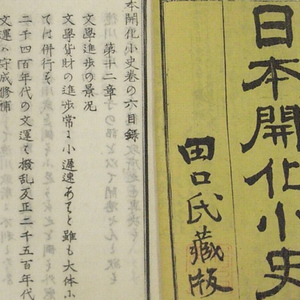 日本開化小史
田口氏藏版
本開化小史卷の六目錄
第十二章
文學進歩の景况
文學貨財の進歩常に小遲速あてと雖も大体小
て併行を
二千四百年代の文運て撥乱反正二千五百年代
文運て守成修補